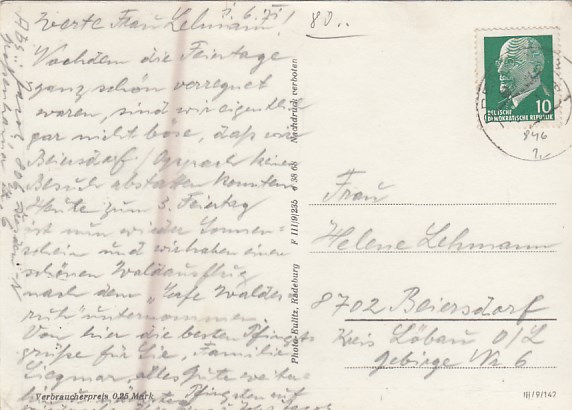 2. 6. 71
Werte Frau Lehmann!
Nachdem die Feiertage
ganz schön verregnet
waren, sind wir eigentlich
gar nicht böse, daß wir
Beiersdorf / Oppach keinen
Besuch abstatten konnten.
Heute zum 3. Feiertag
ist nun wieder Sonnen-
schein und wir haben einen
schönen Waldausflug
nach dem "Cafe Waldes
ruh" unternommen.
Von hier die besten Pfingst
grüße für Sie, Familie
alles Gute weiter
Pfingsten
80..
Verbraucherpreis 0,25 Mark
Photo-Eulitz, Radeburg F III/9/235 d 38 68 Nachdruck verboten
10
DEUTSCHE
DEMOKRATISCHE REPUBLIK
Frau
Helene Lehmann
8702 Beiersdorf
Kreis Löbau O/L
Gebirge Nr 6
III/9/142